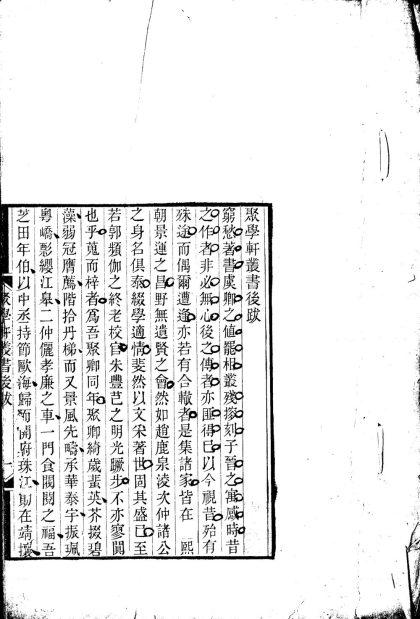 聚學軒叢書後跋
窮愁著書虞卿之値罷相叢殘掇刻子晉之寓感時昔
之作者非必無心後之傳者亦匪得已以今視昔殆有
殊途而偶爾遭逢亦若有合轍者是集諸家皆在 熙
朝景運之昌野無遺賢之會然如趙鹿泉淩次仲諸公
之身名俱泰綴學適情斐然以文采著世固其盛已至
若郭頻伽之終老校官朱豐芑之明光蹶步不亦寥闃
也乎蒐而梓者爲吾聚卿同年聚卿綺歲蜚英芥掇碧
藻弱冠膺薦階拾丹梯而又景風先疇承華泰宇振珮
粤嶠影纓江皋二仲儷孝廉之車一門食閥閱之福吾
芝田年伯以中丞持節歐海歸而開府珠江勛在靖攘
聚學軒叢書後跋 一